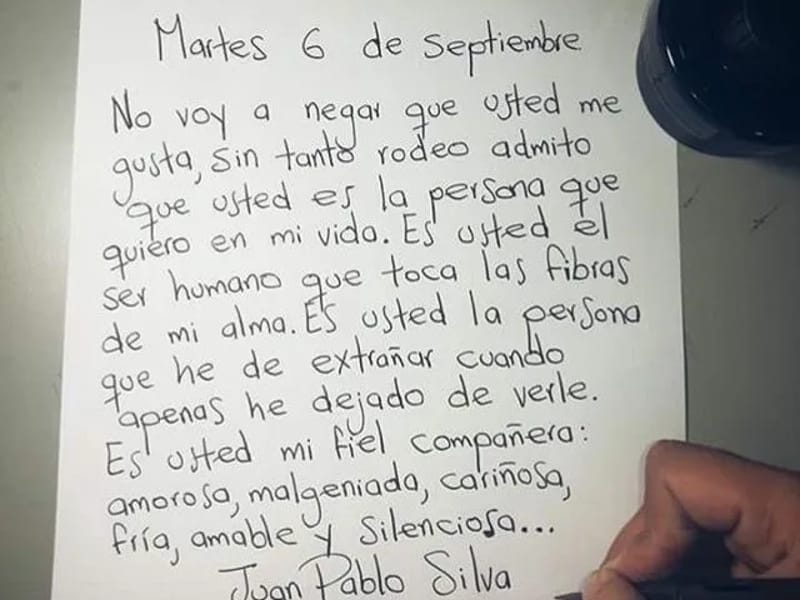 Martes 6 de septiembre
No voy a negar que usted me
gusta, sin tanto rodeo admito
que usted es la persona que
quiero en mi vida. Es usted el
ser humano que toca las fibras
de mi alma. Es usted la persona
que he de extrañar cuando
apenas he dejado de verle.
Es usted mi fiel compañera:
amorosa, malgeniada, cariñosa,
fría, amable y silenciosa...
Juan Pablo Silva